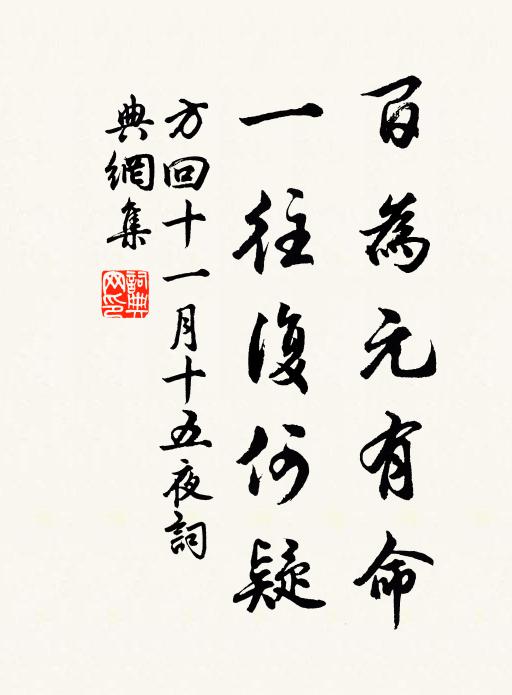 百為元有命
一往復何疑
方回十一月十五夜詞
典網集
詞典
网印